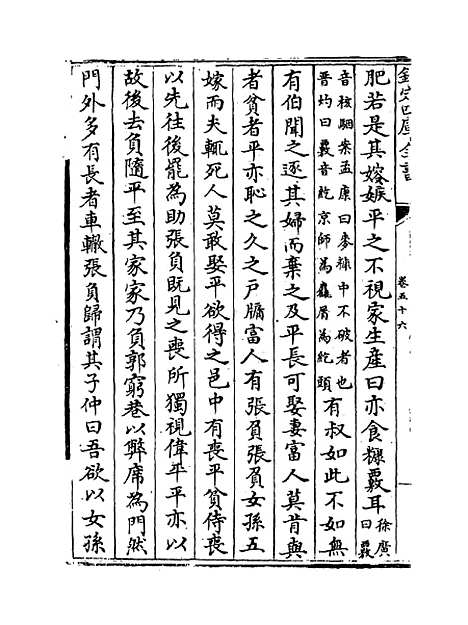 欽定四庫全書
卷五十六
肥若是其嫂嫉平之不視家生産曰亦食糠覈耳徐廣曰覈
音核駰案孟康曰麥糠中不破者也晉灼曰覈音紇京師爲麤屑爲紇頭有叔如此不如無
有伯聞之逐其婦而棄之及平長可娶妻富人莫肯與
者貧者平亦恥之久之户牖富人有張負張負女孫五
嫁而夫輒死人莫敢娶平欲得之邑中有喪平貧侍喪
以先往後罷為助張負既見之喪所獨視偉平平亦以
故後去負隨平至其家家乃負郭窮巷以弊席為門然
門外多有長者車轍張負歸謂其子仲曰吾欲以女孫